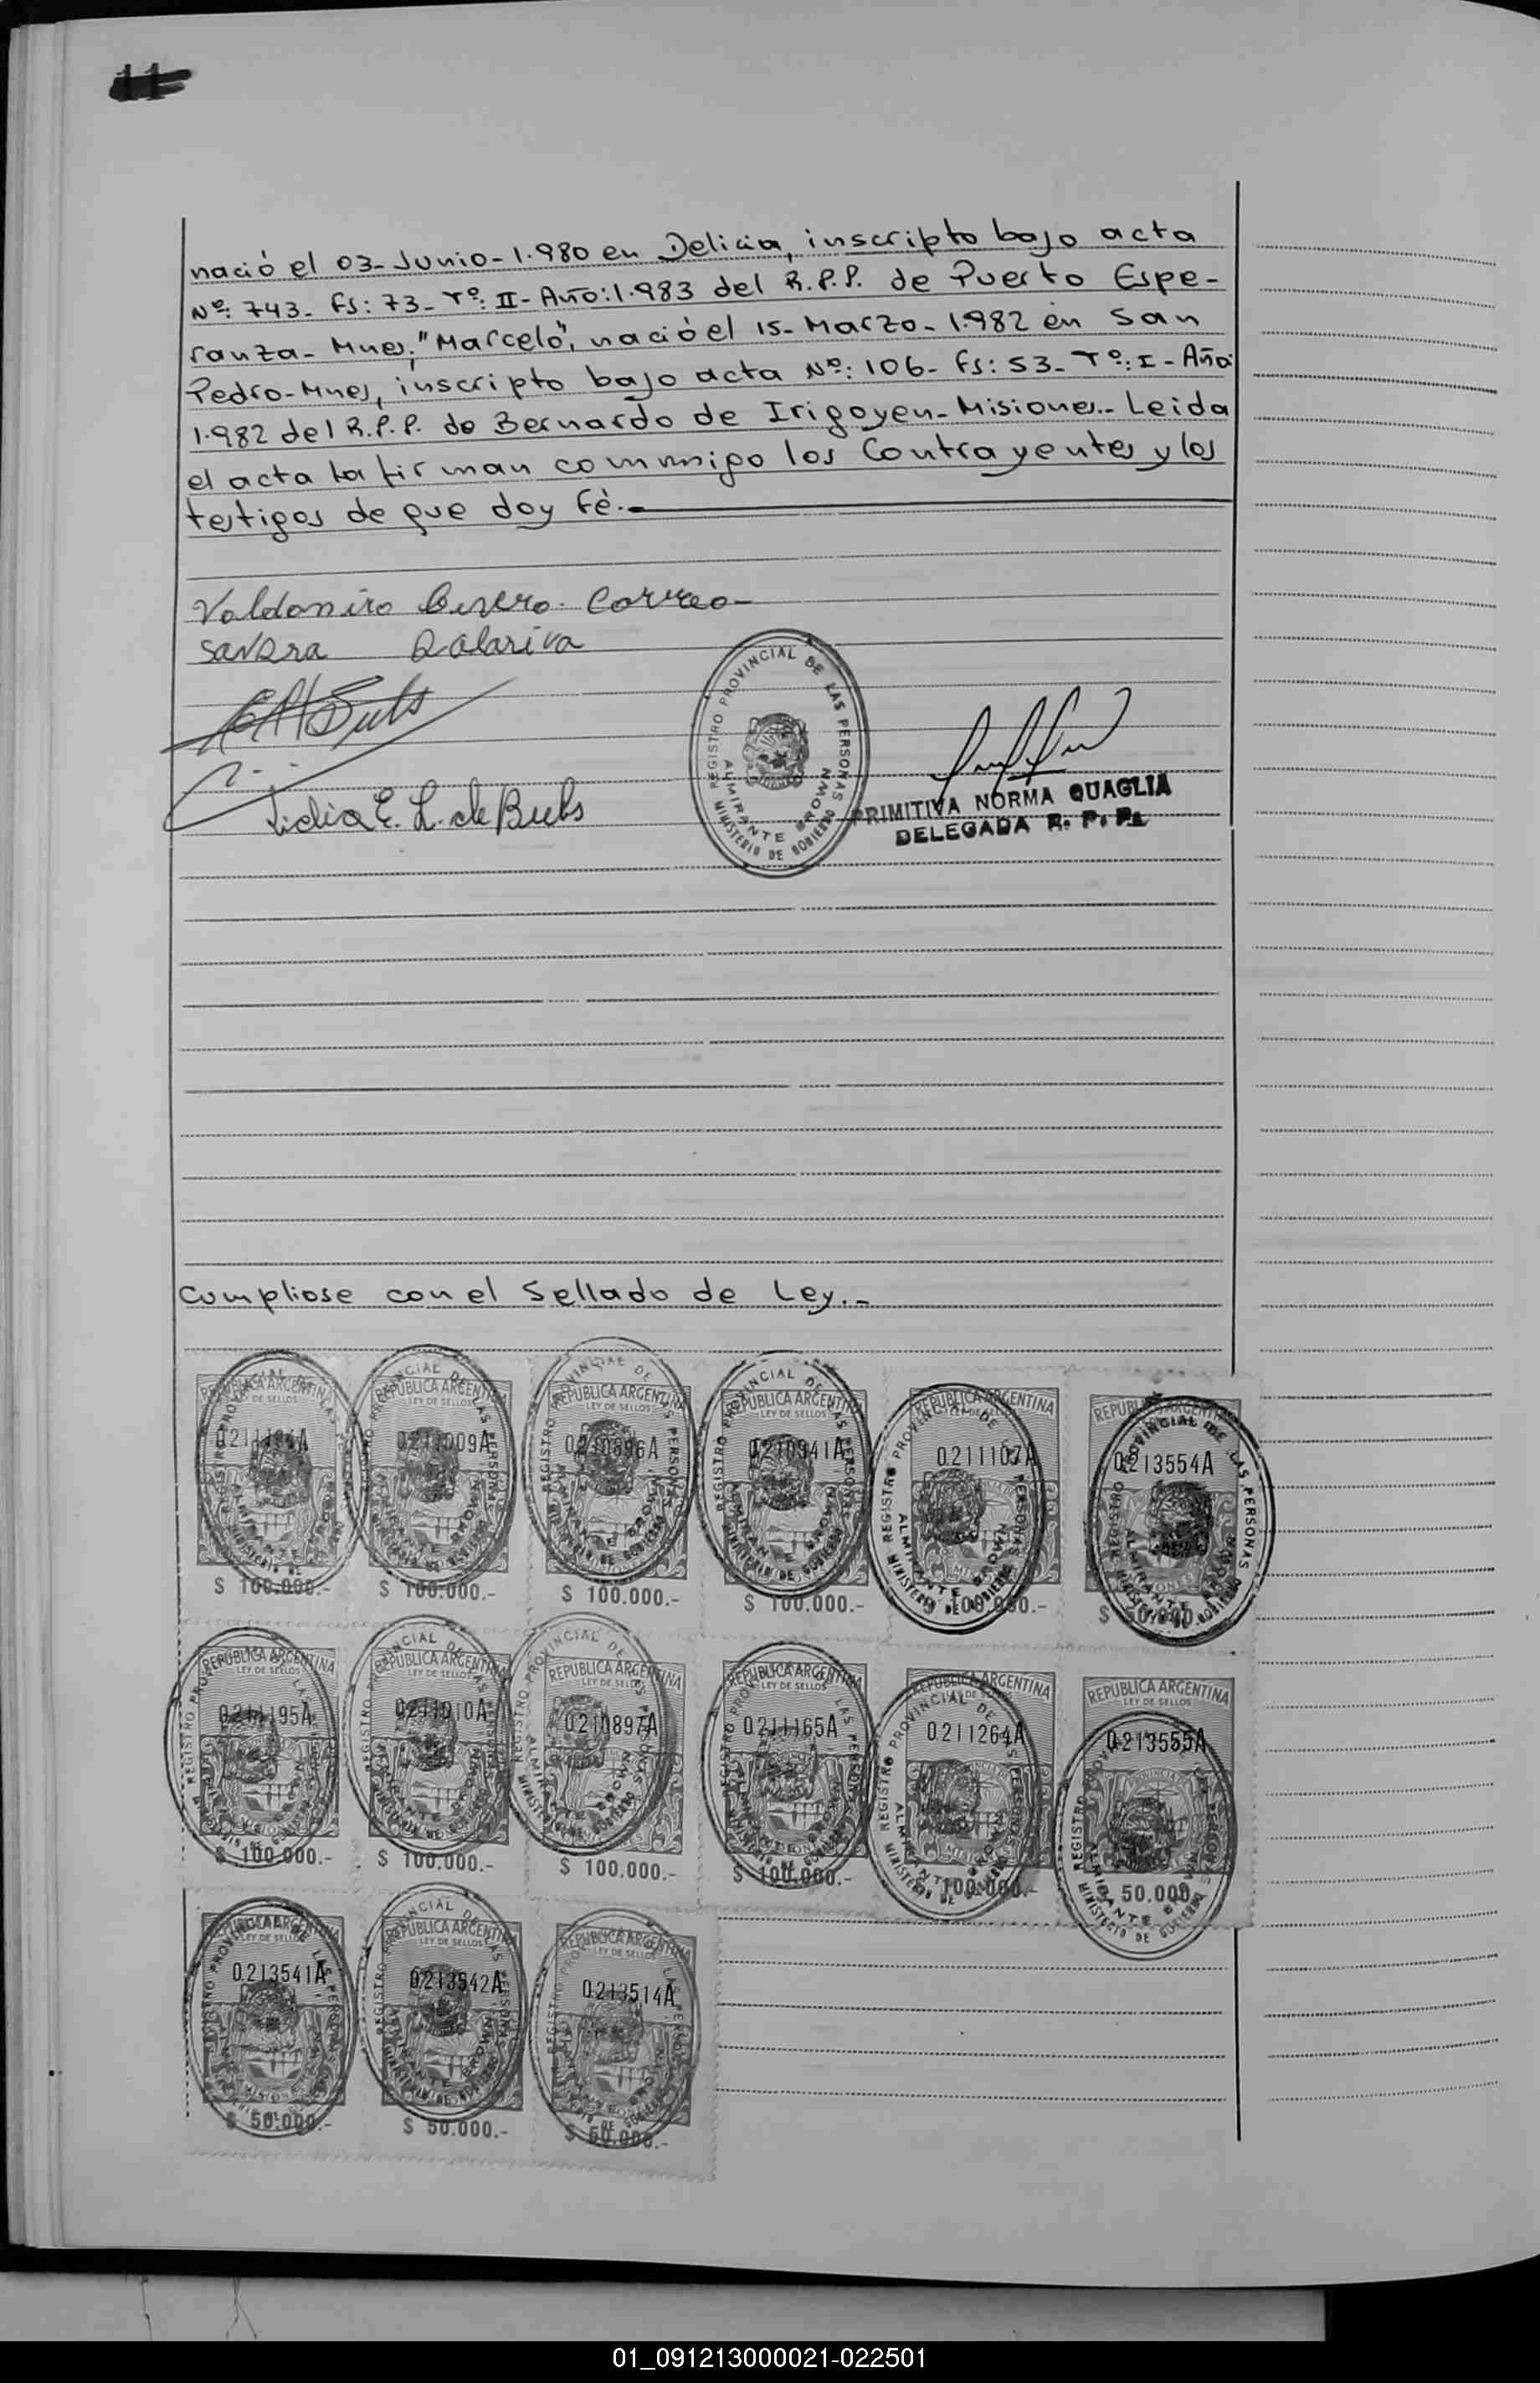 11
nació el 03-Junio-1.980 en Delicia, inscripto bajo acta
Nº: 743- fs: 73- Tº: II- Año:1.983 del R.P.P. de Puerto Espe-
ranza- Mnes; "Marcelo", nació el 15- Marzo- 1.982 en San
Pedro-Mnes, inscripto bajo acta Nº: 106- fs: 53- Tº: I- Año:
1.982 del R.P.P. de Bernardo de Irigoyen- Misiones.- Leida
el acta la firman conmigo los Contrayentes y los
testigos de que doy fé.-
Valdomiro Correo-
SANDRA
Lidia E. L. de Bubs
REGISTRO PROVINCIAL DE LAS PERSONAS
ALMIRANTE BROWN
MINISTERIO DE GOBIERNO
PRIMITIVA NORMA QUAGLIA
DELEGADA R. P. P.
Cumpliose con el Sellado de Ley.-
REPUBLICA ARGENTINA REPUBLICA ARGENTINA REPUBLICA ARGENTINA REPUBLICA ARGENTINA REPUBLICA ARGENTINA REPUBLICA ARGENTINA
LEY DE SELLOS LEY DE SELLOS LEY DE SELLOS LEY DE SELLOS LEY DE SELLOS
0211009A 0210896A 0210941A 0211107A 0213554A
$ 100.000.- $ 100.000.- $ 100.000.- $ 100.000.- $ 100.000.- $ 50.000.
REPUBLICA ARGENTINA REPUBLICA ARGENTINA REPUBLICA ARGENTINA REPUBLICA ARGENTINA REPUBLICA ARGENTINA REPUBLICA ARGENTINA
LEY DE SELLOS LEY DE SELLOS LEY DE SELLOS LEY DE SELLOS LEY DE SELLOS LEY DE SELLOS
0211195A 0211010A 0210897A 0211165A 0211264A 0213555A
$ 100.000.- $ 100.000.- $ 100.000.- $ 100.000.- $ 100.000.- 50.000
REPUBLICA ARGENTINA REPUBLICA ARGENTINA REPUBLICA ARGENTINA
LEY DE SELLOS LEY DE SELLOS LEY DE SELLOS
0213541A 0213542A 0213514A
$ 50.000.- $ 50.000.- $ 50.000.-
01_091213000021-022501